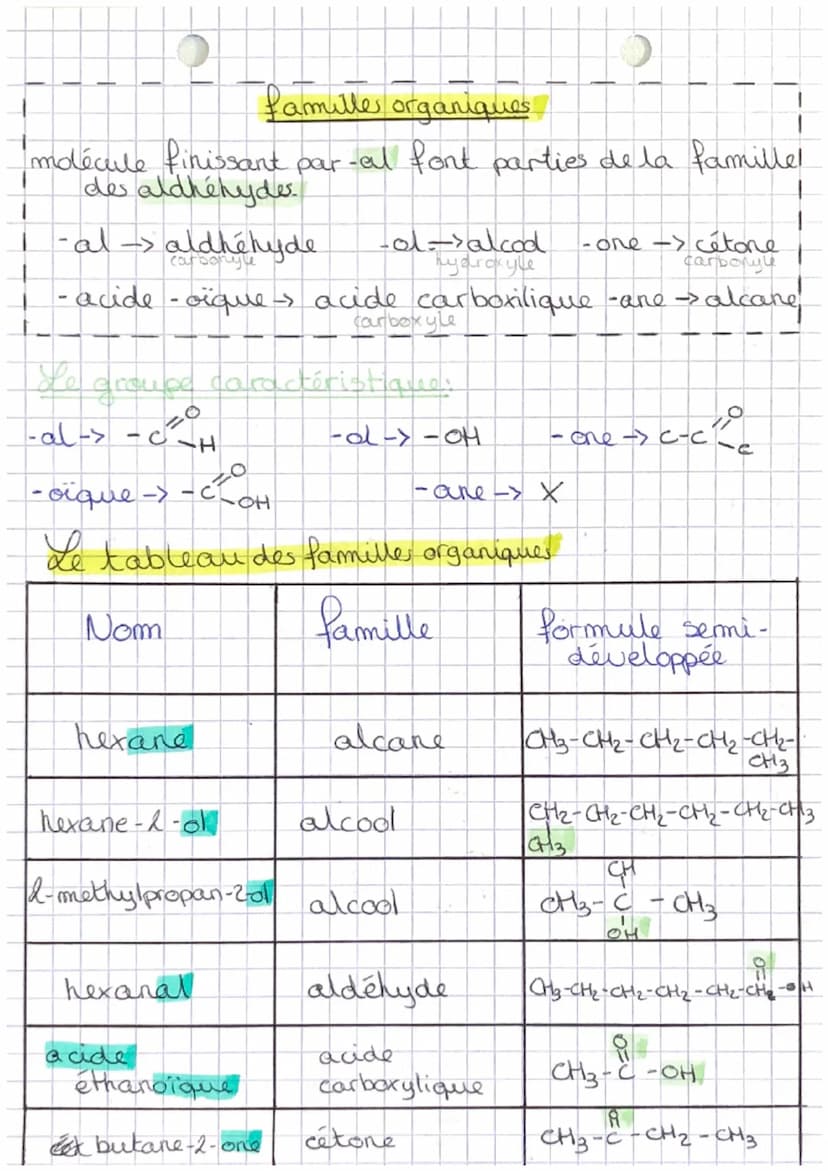 familles organiques
molécule finissant par -al font parties de la famille
des aldhéhydes.
-al -> aldhéhyde -ol -> alcool -one -> cétone
carbonyle hydroxyle carbonyle
-acide -oïque -> acide carboxilique -ane -> alcane
carboxyle
Le groupe caractéristique:
-al -> -C=O-H -ol -> -OH -one -> C-C=O-C
-oïque -> -C=O-OH -ane -> X
Le tableau des familles organiques
Nom famille formule semi-
développée
hexane alcane CH3-CH2-CH2-CH2-CH2-
CH3
hexane-1-ol alcool CH2-CH2-CH2-CH2-CH2-CH3
CH3
CH
2-methylpropan-2-ol alcool CH3-C-CH3
OH
O
hexanal aldéhyde CH3-CH2-CH2-CH2-CH2-CH2-H
acide acide O
éthanoïque carboxylique CH3-C-OH
butane-2-one cétone CH3-C-CH2-CH3